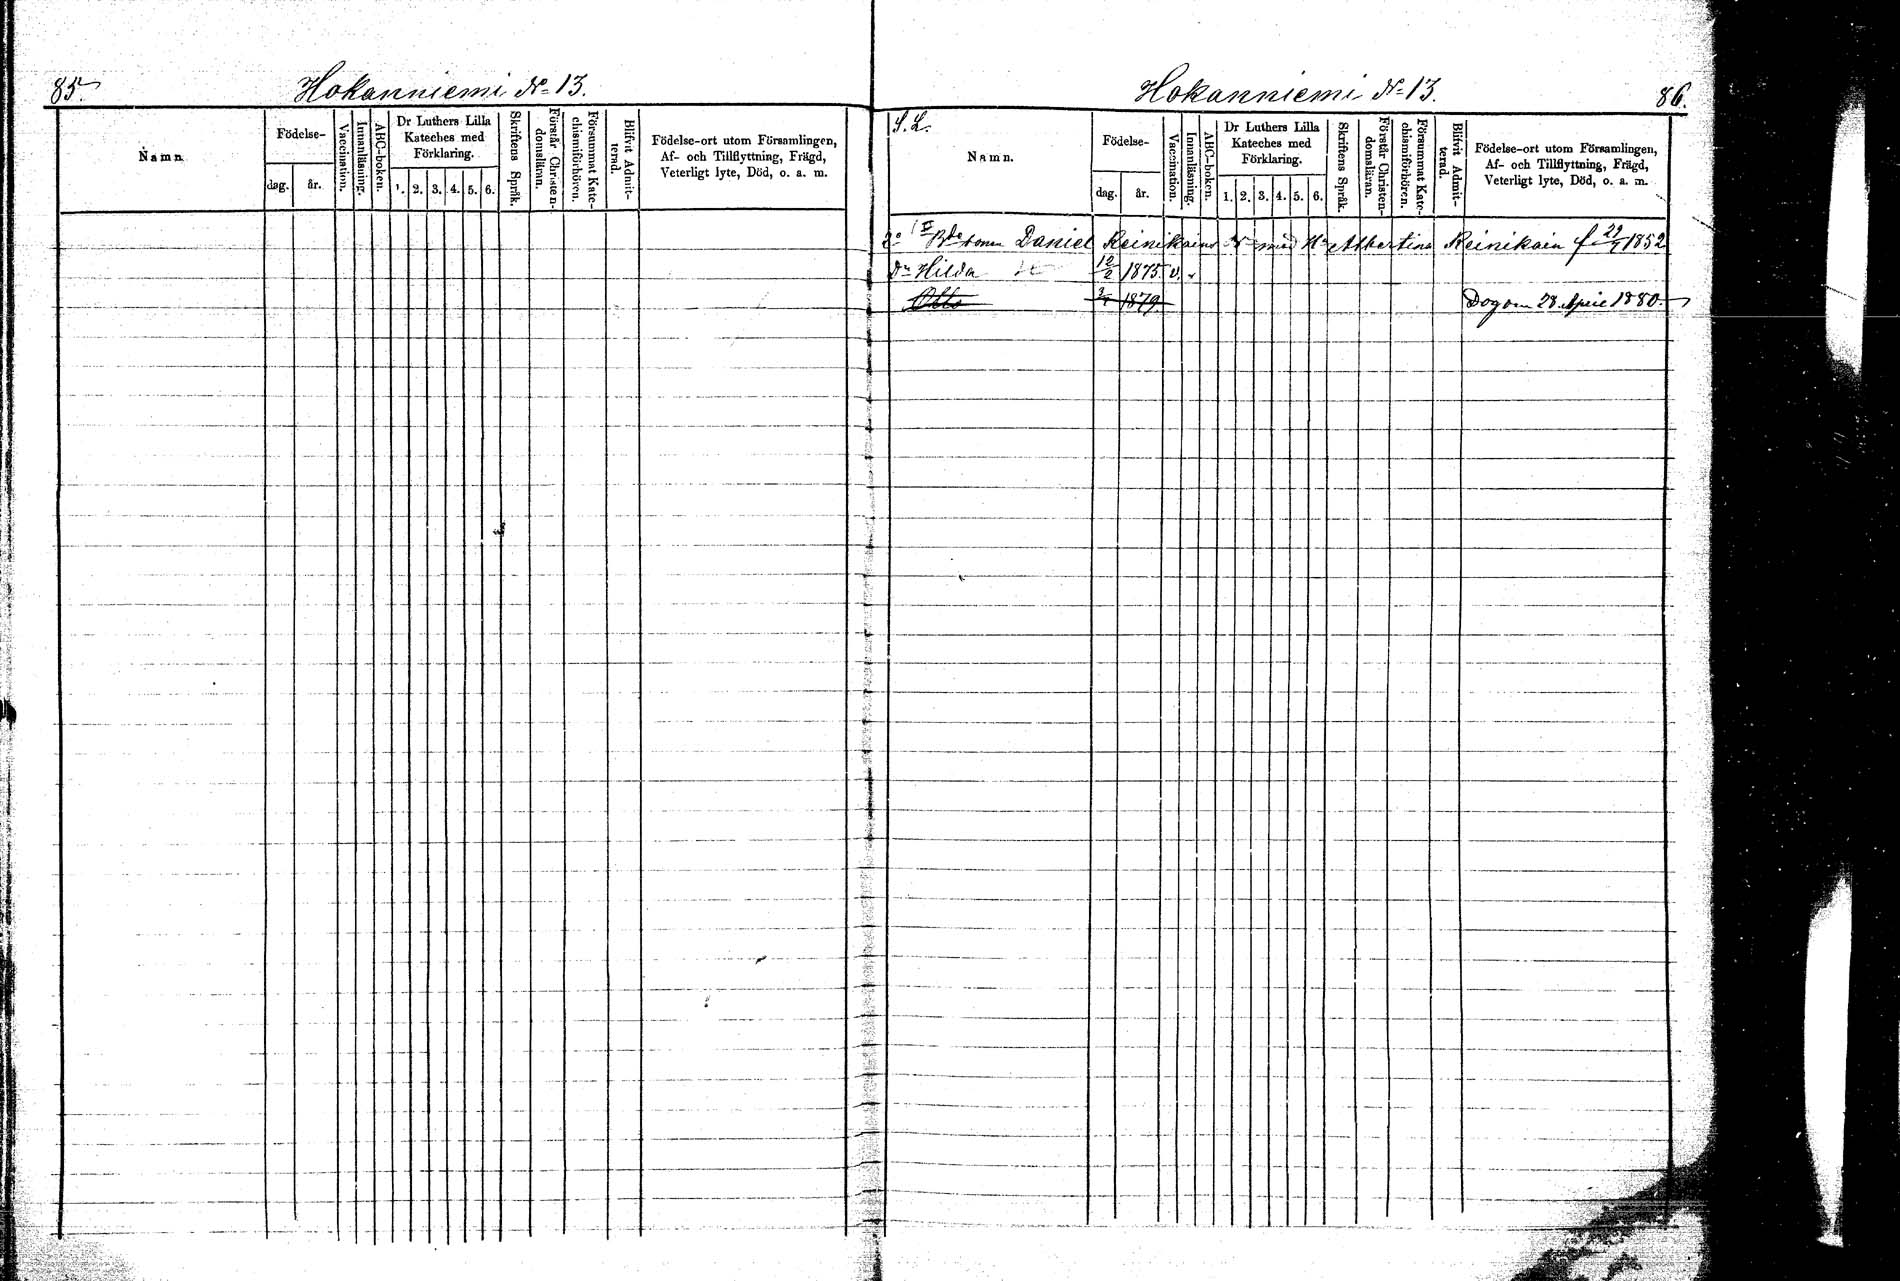 85.
Hokanniemi No 13.
Namn
Födelse-
dag.
år.
Vaccination.
Innanläsning.
ABC-boken.
Dr Luthers Lilla
Kateches med
Förklaring.
1. 2. 3. 4. 5. 6.
Skriftens Språk.
Förstår Christen-
domsläran.
Försummat Kate-
chismiförhören.
Blifvit Admit-
terad.
Födelse-ort utom Församlingen,
Af- och Tillflyttning, Frägd,
Veterligt lyte, Död, o. a. m.
Hokanniemi No 13.
86.
S. L.
Namn.
Födelse-
dag.
år.
Vaccination.
Innanläsning.
ABC-boken.
Dr Luthers Lilla
Kateches med
Förklaring.
1. 2. 3. 4. 5. 6.
Skriftens Språk.
Förstår Christen-
domsläran.
Försummat Kate-
chismiförhören.
Blifvit Admit-
terad.
Födelse-ort utom Församlingen,
Af- och Tillflyttning, Frägd,
Veterligt lyte, Död, o. a. m.
Daniel Reinikainens med Hu Albertina Reinikain f. 1852
Dr Hilda 12/2 1875. v.
Otto 1879. Dog om 28 April 1880